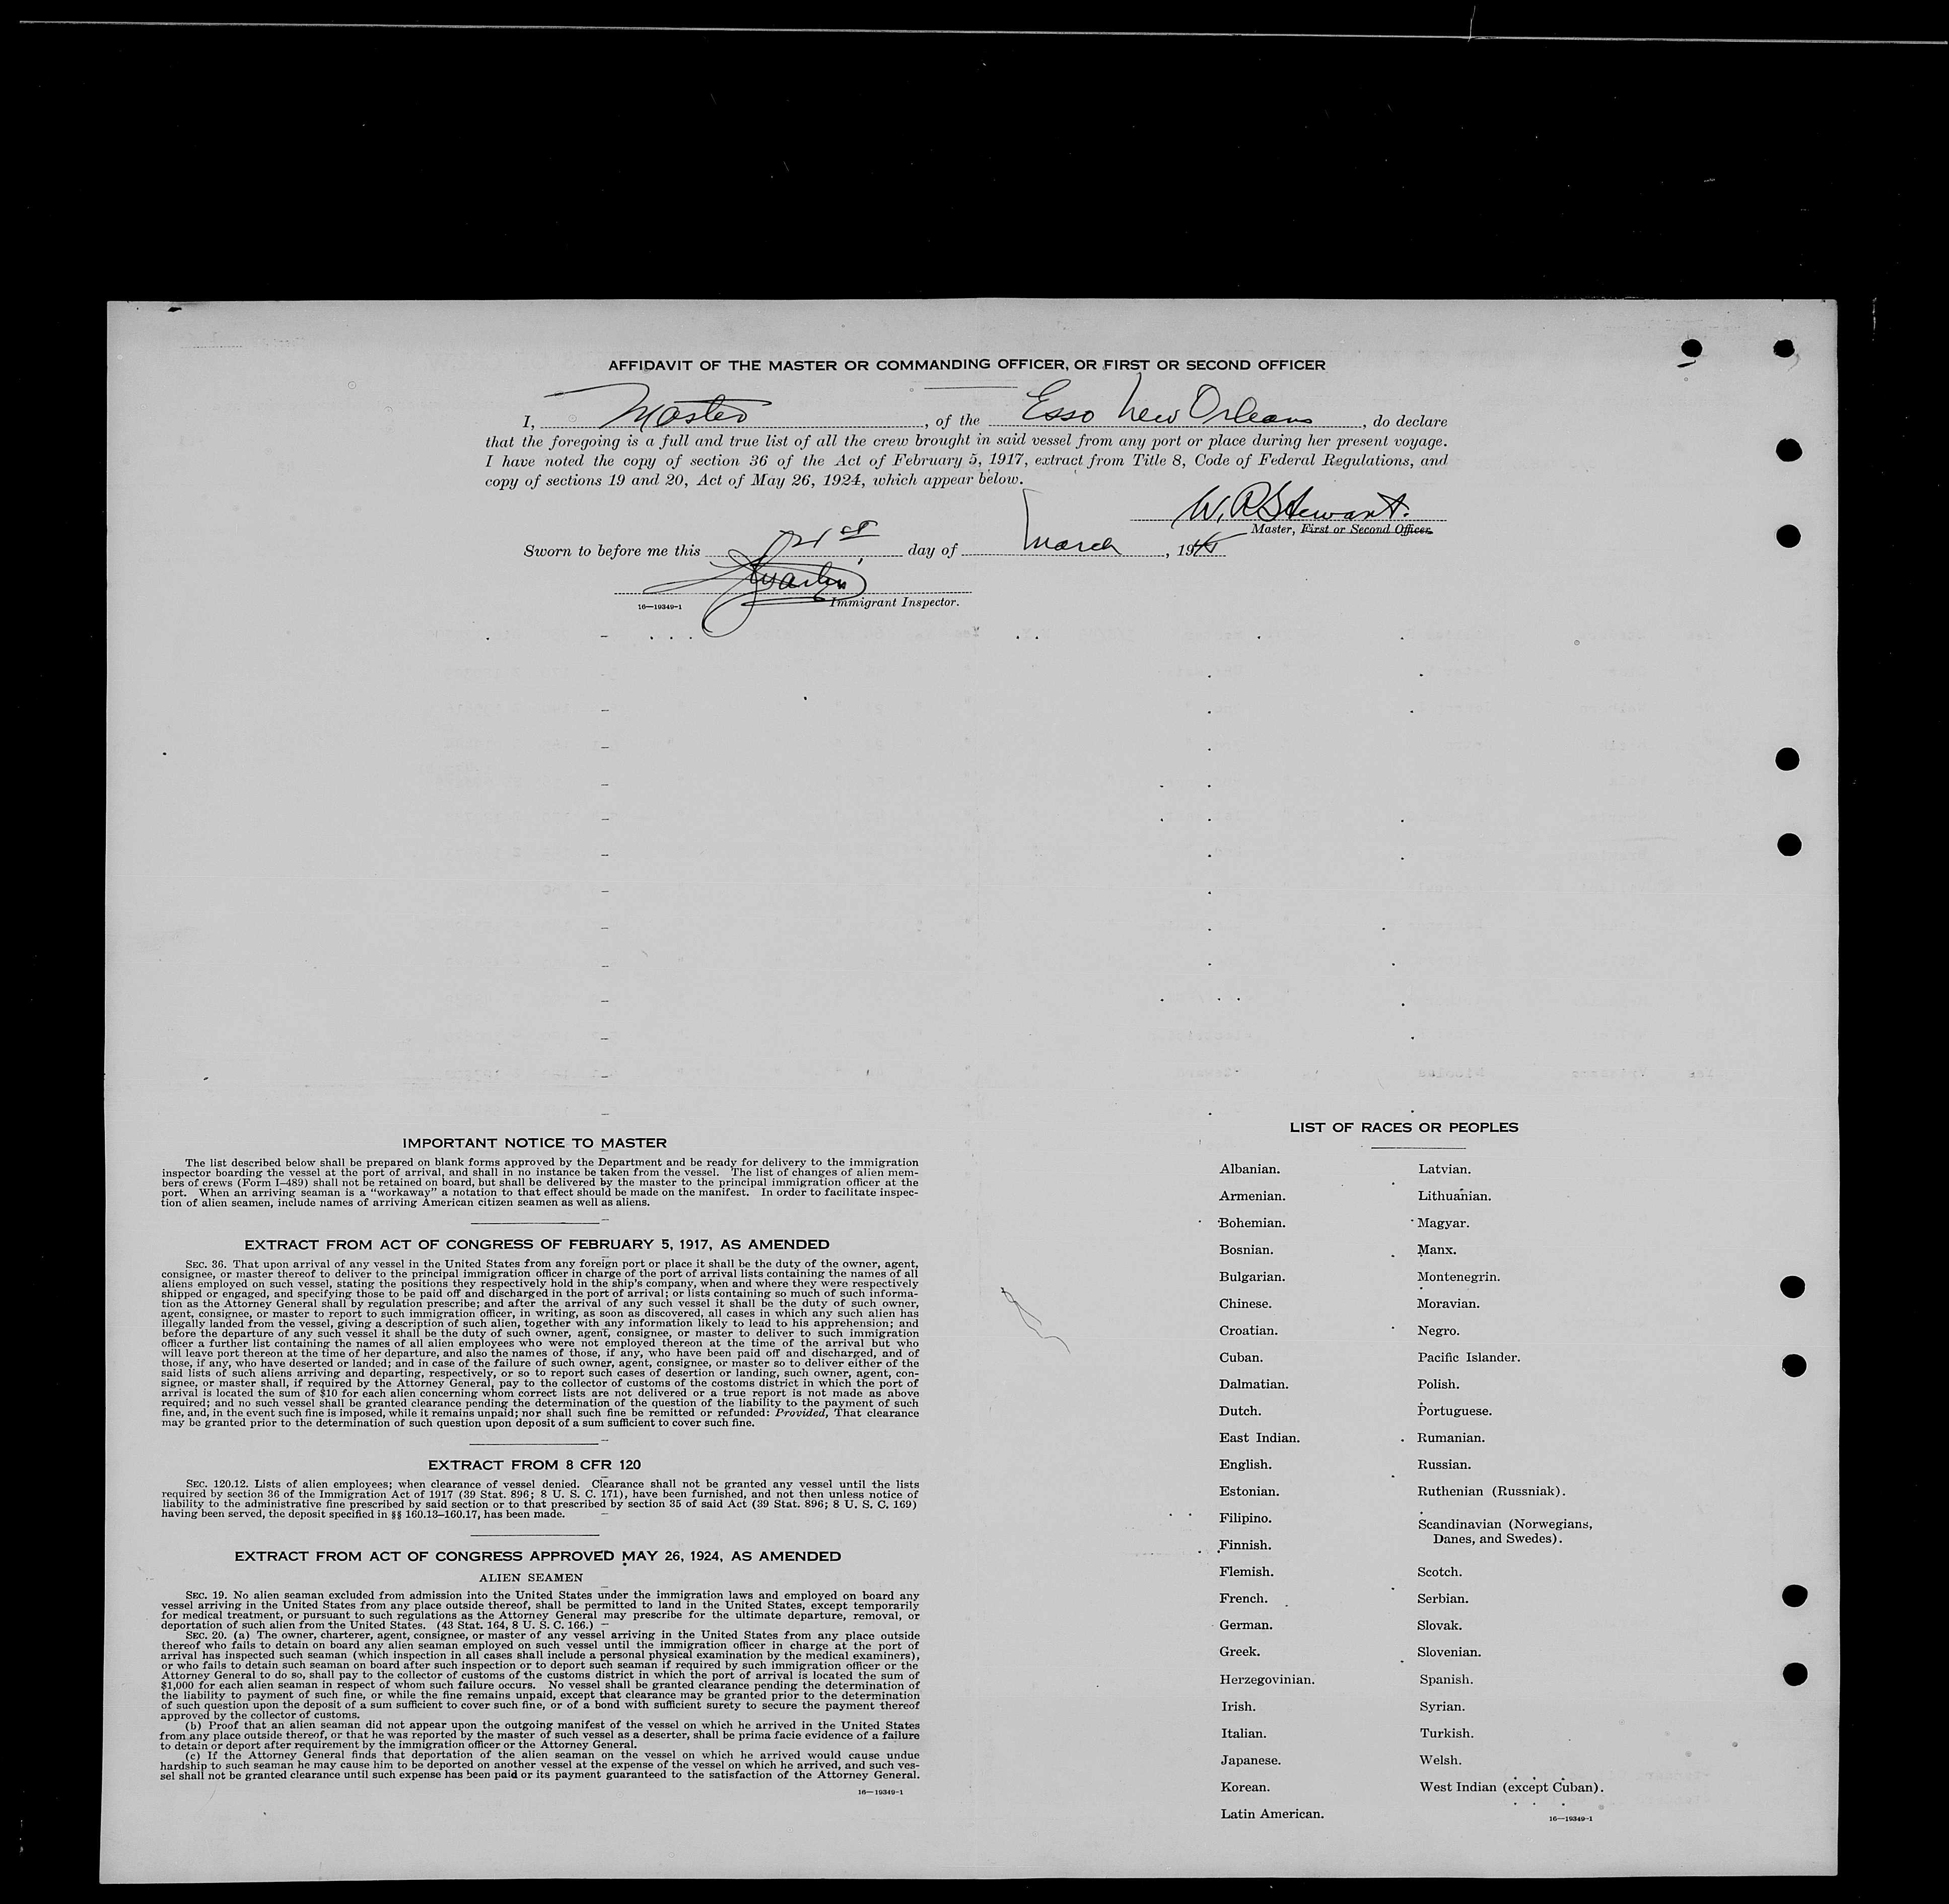 AFFIDAVIT OF THE MASTER OR COMMANDING OFFICER, OR FIRST OR SECOND OFFICER
I, Master, of the Esso New Orleans, do declare
that the foregoing is a full and true list of all the crew brought in said vessel from any port or place during her present voyage.
I have noted the copy of section 36 of the Act of February 5, 1917, extract from Title 8, Code of Federal Regulations, and
copy of sections 19 and 20, Act of May 26, 1924, which appear below.
W. R. Stewart.
Master, First or Second Officer.
Sworn to before me this 21st day of March, 19
Immigrant Inspector.
16—19349-1
IMPORTANT NOTICE TO MASTER
The list described below shall be prepared on blank forms approved by the Department and be ready for delivery to the immigration
inspector boarding the vessel at the port of arrival, and shall in no instance be taken from the vessel. The list of changes of alien mem-
bers of crews (Form I–489) shall not be retained on board, but shall be delivered by the master to the principal immigration officer at the
port. When an arriving seaman is a “workaway” a notation to that effect should be made on the manifest. In order to facilitate inspec-
tion of alien seamen, include names of arriving American citizen seamen as well as aliens.
EXTRACT FROM ACT OF CONGRESS OF FEBRUARY 5, 1917, AS AMENDED
SEC. 36. That upon arrival of any vessel in the United States from any foreign port or place it shall be the duty of the owner, agent,
consignee, or master thereof to deliver to the principal immigration officer in charge of the port of arrival lists containing the names of all
aliens employed on such vessel, stating the positions they respectively hold in the ship's company, when and where they were respectively
shipped or engaged, and specifying those to be paid off and discharged in the port of arrival; or lists containing so much of such informa-
tion as the Attorney General shall by regulation prescribe; and after the arrival of any such vessel it shall be the duty of such owner,
agent, consignee, or master to report to such immigration officer, in writing, as soon as discovered, all cases in which any such alien has
illegally landed from the vessel, giving a description of such alien, together with any information likely to lead to his apprehension; and
before the departure of any such vessel it shall be the duty of such owner, agent, consignee, or master to deliver to such immigration
officer a further list containing the names of all alien employees who were not employed thereon at the time of the arrival but who
will leave port thereon at the time of her departure, and also the names of those, if any, who have been paid off and discharged, and of
those, if any, who have deserted or landed; and in case of the failure of such owner, agent, consignee, or master so to deliver either of the
said lists of such aliens arriving and departing, respectively, or so to report such cases of desertion or landing, such owner, agent, con-
signee, or master shall, if required by the Attorney General, pay to the collector of customs of the costoms district in which the port of
arrival is located the sum of $10 for each alien concerning whom correct lists are not delivered or a true report is not made as above
required; and no such vessel shall be granted clearance pending the determination of the question of the liability to the payment of such
fine, and, in the event such fine is imposed, while it remains unpaid; nor shall such fine be remitted or refunded: Provided, That clearance
may be granted prior to the determination of such question upon deposit of a sum sufficient to cover such fine.
EXTRACT FROM 8 CFR 120
SEC. 120.12. Lists of alien employees; when clearance of vessel denied. Clearance shall not be granted any vessel until the lists
required by section 36 of the Immigration Act of 1917 (39 Stat. 896; 8 U. S. C. 171), have been furnished, and not then unless notice of
liability to the administrative fine prescribed by said section or to that prescribed by section 35 of said Act (39 Stat. 896; 8 U. S. C. 169)
having been served, the deposit specified in §§ 160.13–160.17, has been made.
EXTRACT FROM ACT OF CONGRESS APPROVED MAY 26, 1924, AS AMENDED
ALIEN SEAMEN
SEC. 19. No alien seaman excluded from admission into the United States under the immigration laws and employed on board any
vessel arriving in the United States from any place outside thereof, shall be permitted to land in the United States, except temporarily
for medical treatment, or pursuant to such regulations as the Attorney General may prescribe for the ultimate departure, removal, or
deportation of such alien from the United States. (43 Stat. 164, 8 U. S. C. 166.)
SEC. 20. (a) The owner, charterer, agent, consignee, or master of any vessel arriving in the United States from any place outside
thereof who fails to detain on board any alien seaman employed on such vessel until the immigration officer in charge at the port of
arrival has inspected such seaman (which inspection in all cases shall include a personal physical examination by the medical examiners),
or who fails to detain such seaman on board after such inspection or to deport such seaman if required by such immigration officer or the
Attorney General to do so, shall pay to the collector of customs of the customs district in which the port of arrival is located the sum of
$1,000 for each alien seaman in respect of whom such failure occurs. No vessel shall be granted clearance pending the determination of
the liability to payment of such fine, or while the fine remains unpaid, except that clearance may be granted prior to the determination
of such question upon the deposit of a sum sufficient to cover such fine, or of a bond with sufficient surety to secure the payment thereof
approved by the collector of customs.
(b) Proof that an alien seaman did not appear upon the outgoing manifest of the vessel on which he arrived in the United States
from any place outside thereof, or that he was reported by the master of such vessel as a deserter, shall be prima facie evidence of a failure
to detain or deport after requirement by the immigration officer or the Attorney General.
(c) If the Attorney General finds that deportation of the alien seaman on the vessel on which he arrived would cause undue
hardship to such seaman he may cause him to be deported on another vessel at the expense of the vessel on which he arrived, and such ves-
sel shall not be granted clearance until such expense has been paid or its payment guaranteed to the satisfaction of the Attorney General.
16—19349-1
LIST OF RACES OR PEOPLES
Albanian.
Armenian.
Bohemian.
Bosnian.
Bulgarian.
Chinese.
Croatian.
Cuban.
Dalmatian.
Dutch.
East Indian.
English.
Estonian.
Filipino.
Finnish.
Flemish.
French.
German.
Greek.
Herzegovinian.
Irish.
Italian.
Japanese.
Korean.
Latin American.
Latvian.
Lithuanian.
Magyar.
Manx.
Montenegrin.
Moravian.
Negro.
Pacific Islander.
Polish.
Portuguese.
Rumanian.
Russian.
Ruthenian (Russniak).
Scandinavian (Norwegians,
Danes, and Swedes).
Scotch.
Serbian.
Slovak.
Slovenian.
Spanish.
Syrian.
Turkish.
Welsh.
West Indian (except Cuban).
16—19349-1